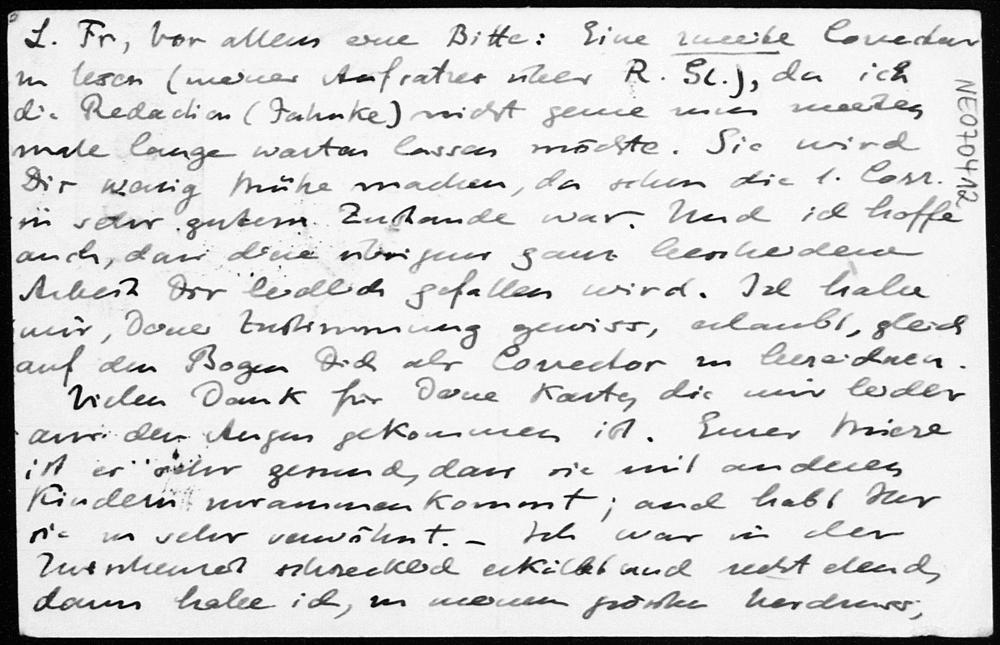 L. Fr., Vor allem eine Bitte: Eine zweite Correctur
zu lesen (meines Aufsatzes über R. St.), da ich
die Redaction (Jahnke) nicht gerne zum zweiten
male lange warten lassen möchte. Sie wird
Dir wenig Mühe machen, da schon die 1. Corr.
in sehr gutem Zustande war. Und ich hoffe
auch, dass diese übrigens ganz bescheidene
Arbeit Dir leidlich gefallen wird. Ich habe
mir, Deiner Zustimmung gewiss, erlaubt, gleich
auf den Bogen Dich als Corrector zu bezeichnen.
Vielen Dank für Deine Karte, die mir leider
aus den Augen gekommen ist. Eurer Mieze
ist es sehr gesund, dass sie mit anderen
Kindern zusammenkommt; auch habt Ihr
sie zu sehr verwöhnt. – Ich war in der
Zwischenzeit schrecklich erkältet und recht elend,
dann habe ich, zu meinem grössten Verdruss,
NE0704 12